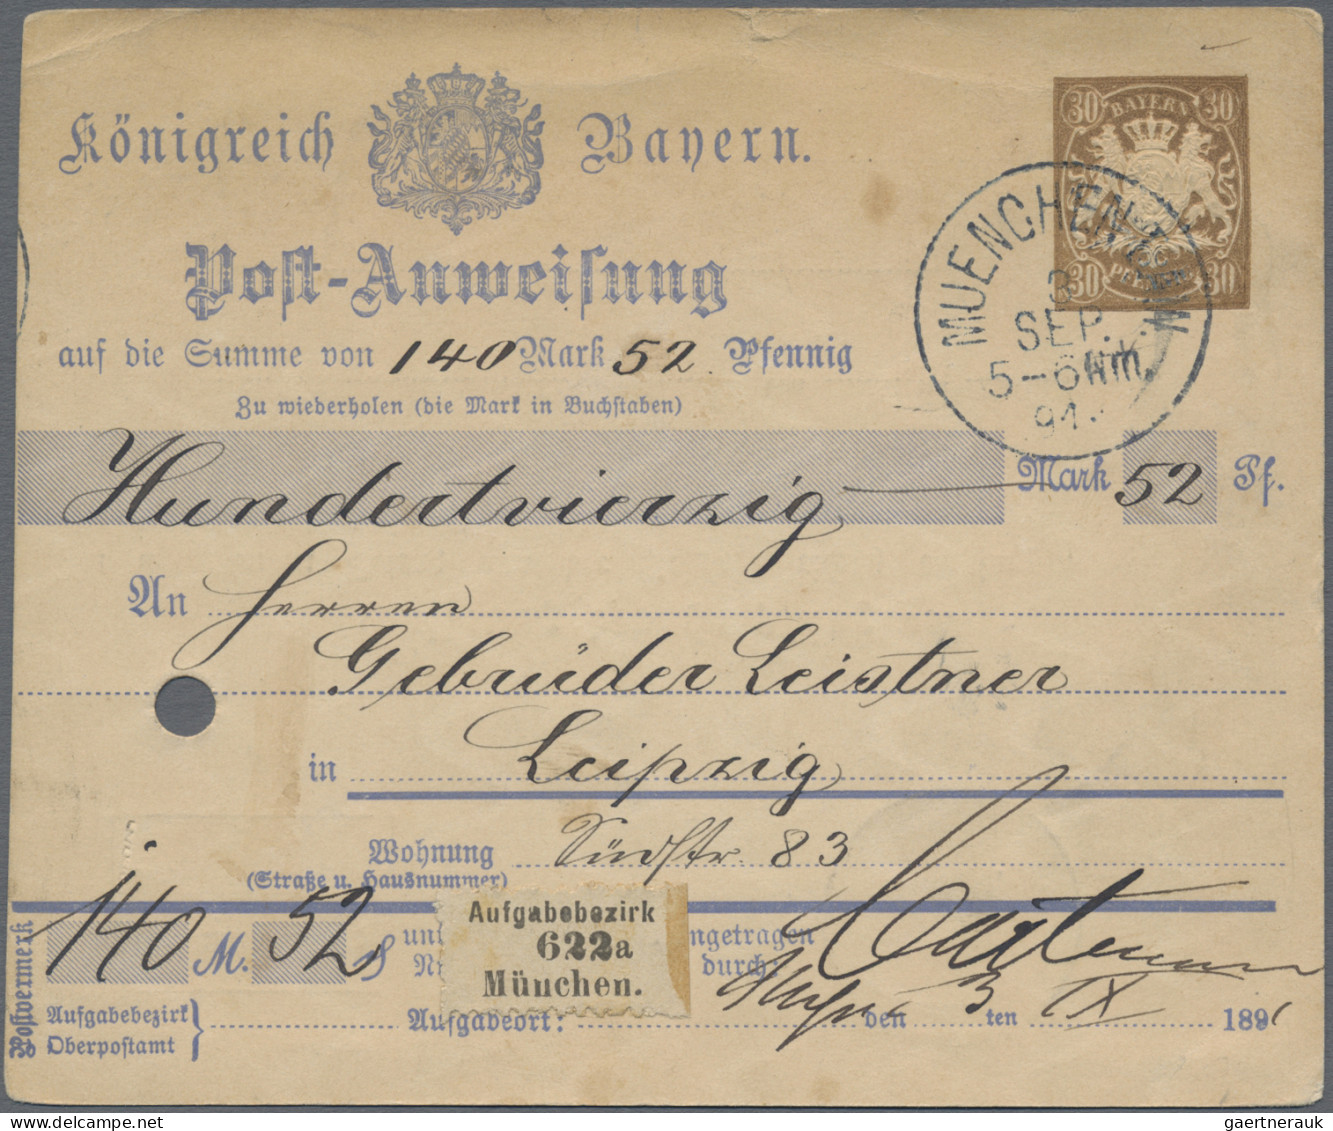 Königreich Bayern.
30 BAYERN 30
30 PFENNIG 30
Post-Anweisung
MUENCHEN
3
SEP.
5-6 Nm.
91.
auf die Summe von 140 Mark 52 Pfennig
Zu wiederholen (die Mark in Buchstaben)
Hundertvierzig — Mark 52 Pf.
An Herren
Gebrüder Leistner
in Leipzig
Wohnung Südstr. 83
(Straße u. Hausnummer)
Postvermerk
140 M. 52 ₰ ngetragen
durch:
Aufgabebezirk
622a
München.
Aufgabebezirk
Oberpostamt
Aufgabeort: den 3 ten IX 1891
gaertnerauk.com